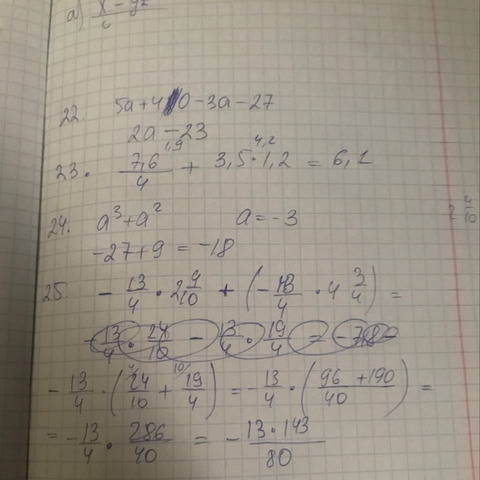 a) x - y²
22 5a+4 0-3a-27
2a-23
23. 7,6/4 (1,9) + 3,5·1,2 (4,2) = 6,1
24. a³+a² a=-3
-27+9 = -18
25. -13/4 · 2 4/10 + (-13/4 · 4 3/4) =
-13/4 · 24/10 - 13/4 · 19/4 =
-13/4 · (24/10 + 19/4) = -13/4 · (96+190/40) =
= -13/4 · 286/40 = -13·143/80